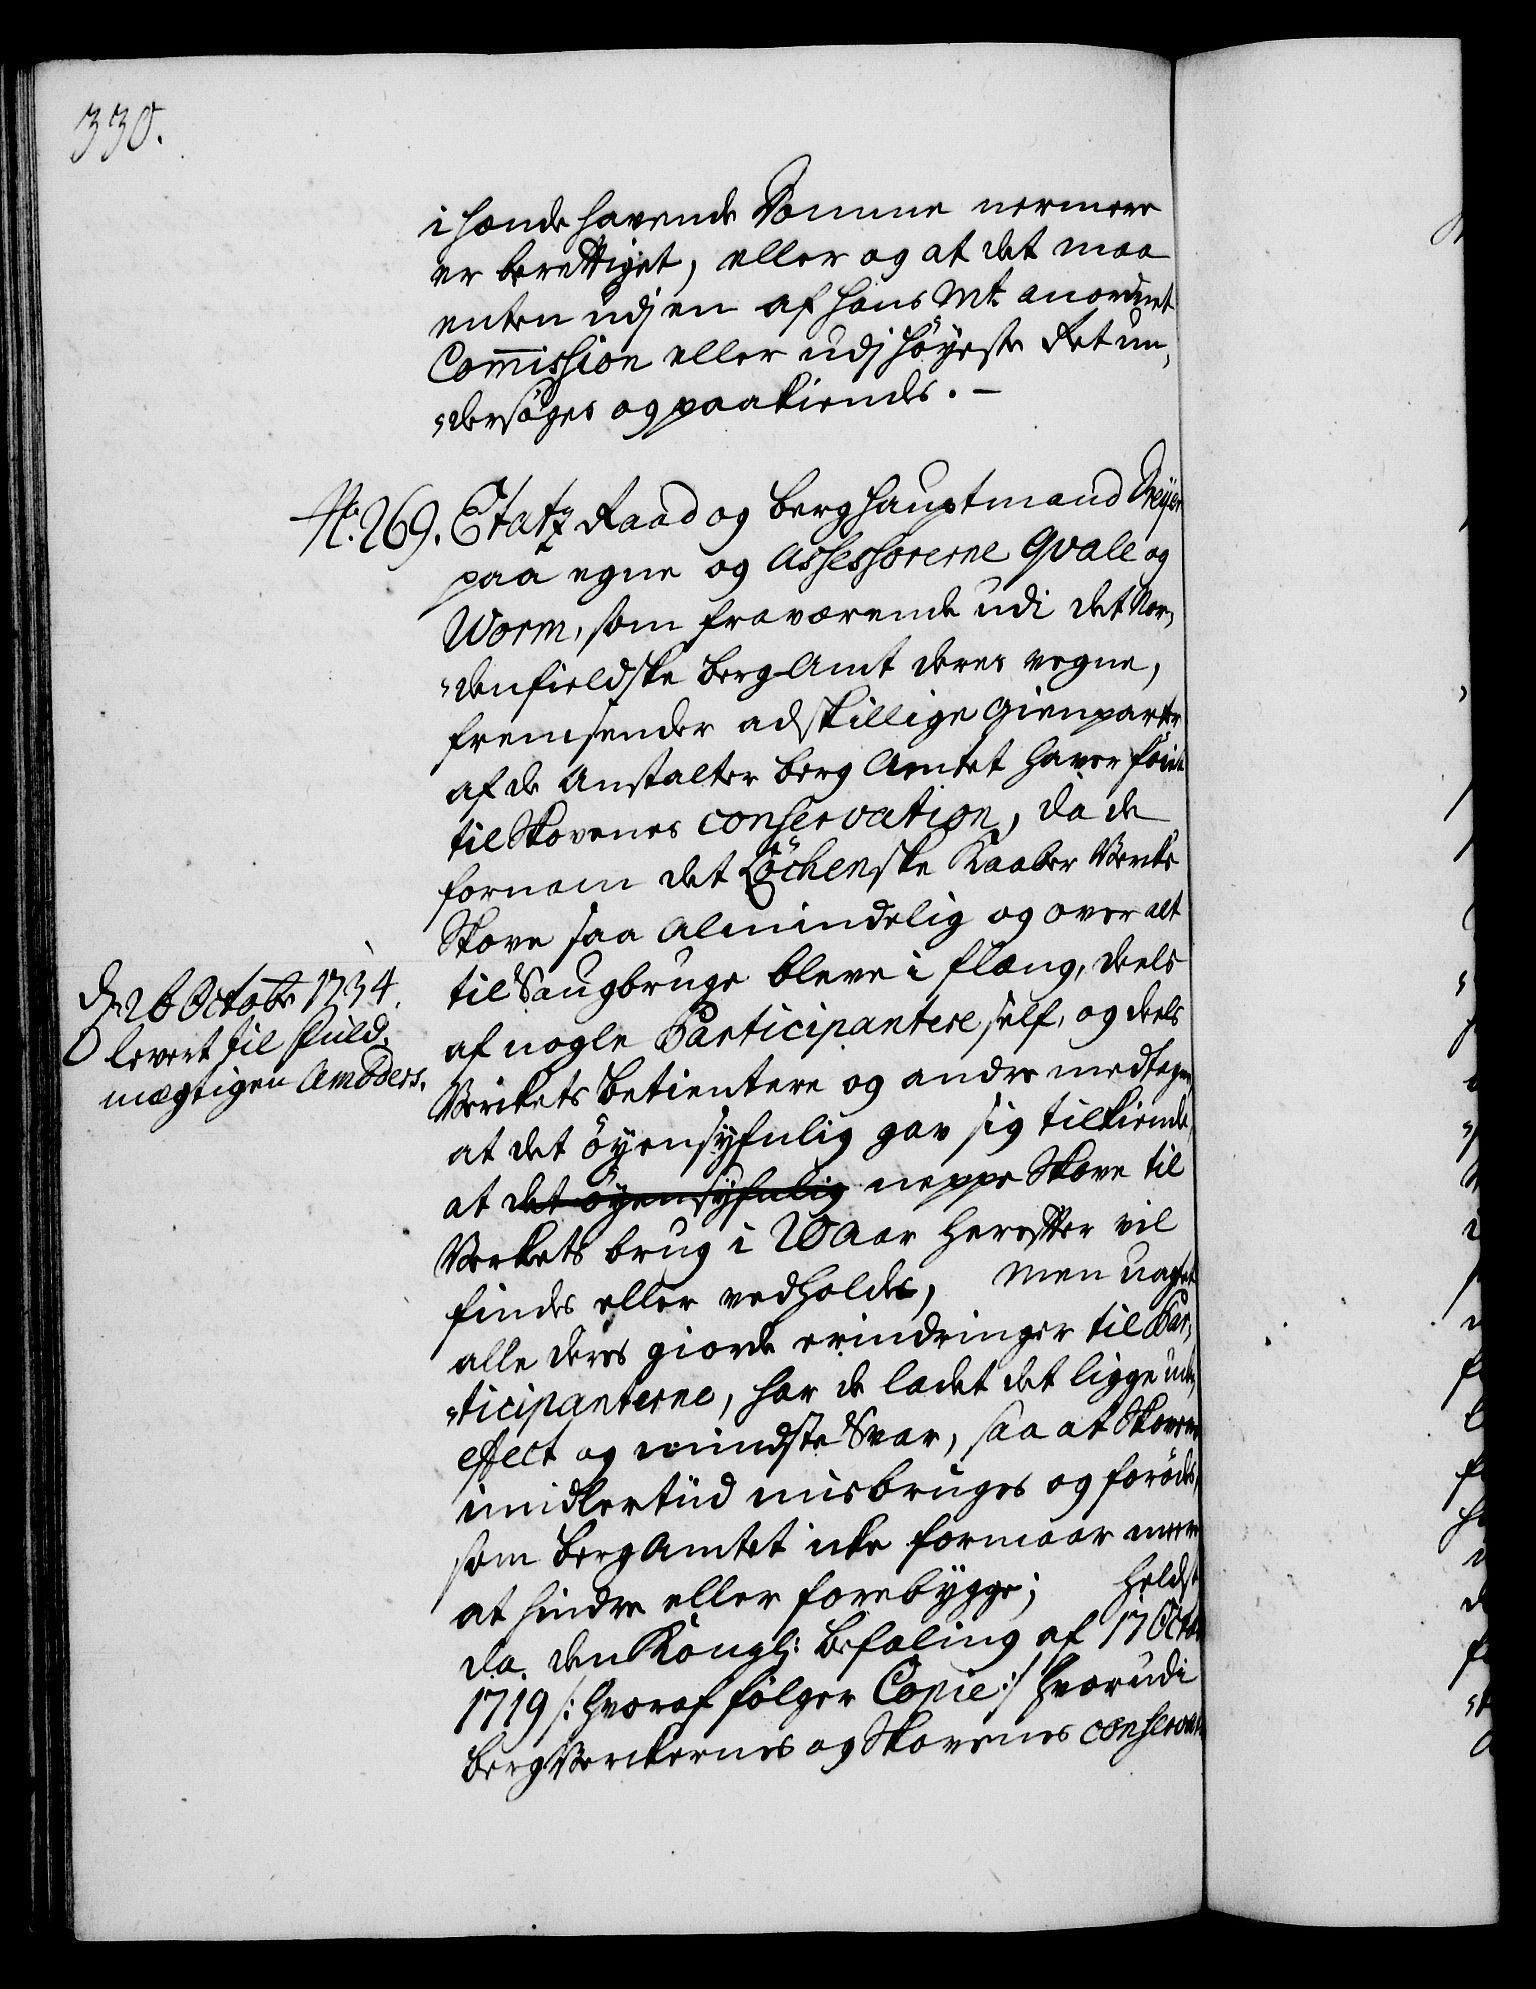 330.
i hænde havende Domme nermere
er berettiget, eller og at det maa
enten udj en af hans Mt. anordnet
Commission eller udj høyeste Ret un,
dersøges og paakiendes. –
No. 269. Etatz Raad og Berghauptmand Dreyer
paa egne og Assessorerne Qvale og
Worm, som fraværende udi det Nor,
denfieldske Berg Amt deres vegne,
fremsender adskillige Gienparter
af de Anstalter Berg Amtet haver føiet
til Skovenes conservation, da de
fornam det Løchenske Kaaber Vercks
Skove saa Almindelig og over alt
til Saugbruge bleve i flæng, deels
af nogle Participantere self, og deels
Verckets Betientere og andre medtagen,
at det øyensyhnlig gav sig tilkiende,
at det øyensyhnlig neppe Skove til
Verkets brug i 20 Aar herefter vil
findes eller vedholdes, Men uagtet
alle deres giorde erindringer til Par,
ticipanterne, har de ladet det ligge uden
effect og mindste Svar, saa at Skovene
imidlertiid misbruges og forødes,
som Berg Amtet icke formaar meere
at hindre eller forebygge; heldst
da den Kongl: Befaling af 17 Octob
1719 /: hvoraf følger Copie :/ hvorudi
BergVerckernes og Skovenes conserva
d. 26 Octobr 1734.
levert til fuld,
mægtigen Amböders.